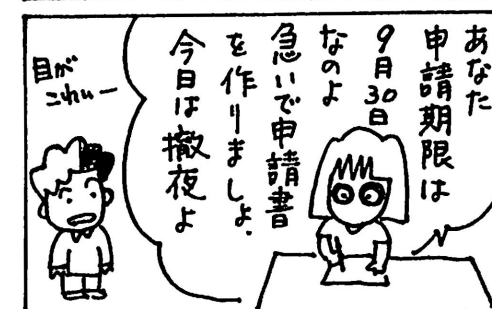 あなた
申請期限は
9月30日
なのよ
急いで申請書
を作りましょ.
今日は撤夜よ
目が
こわいー